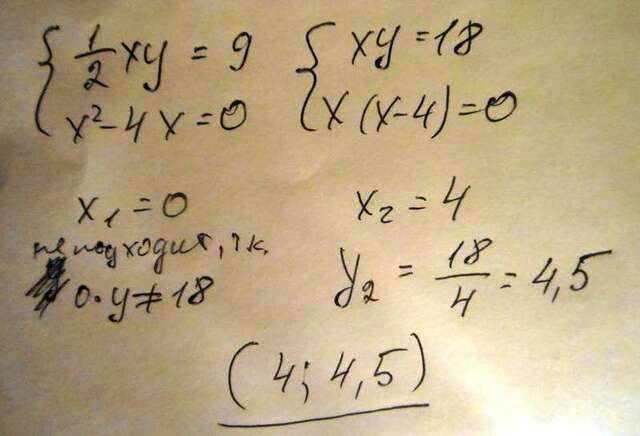 { 1/2 xy = 9
x² - 4x = 0
{ xy = 18
x(x-4) = 0
x₁ = 0
не подходит, т.к.
0·y ≠ 18
x₂ = 4
y₂ = 18/4 = 4,5
(4; 4,5)